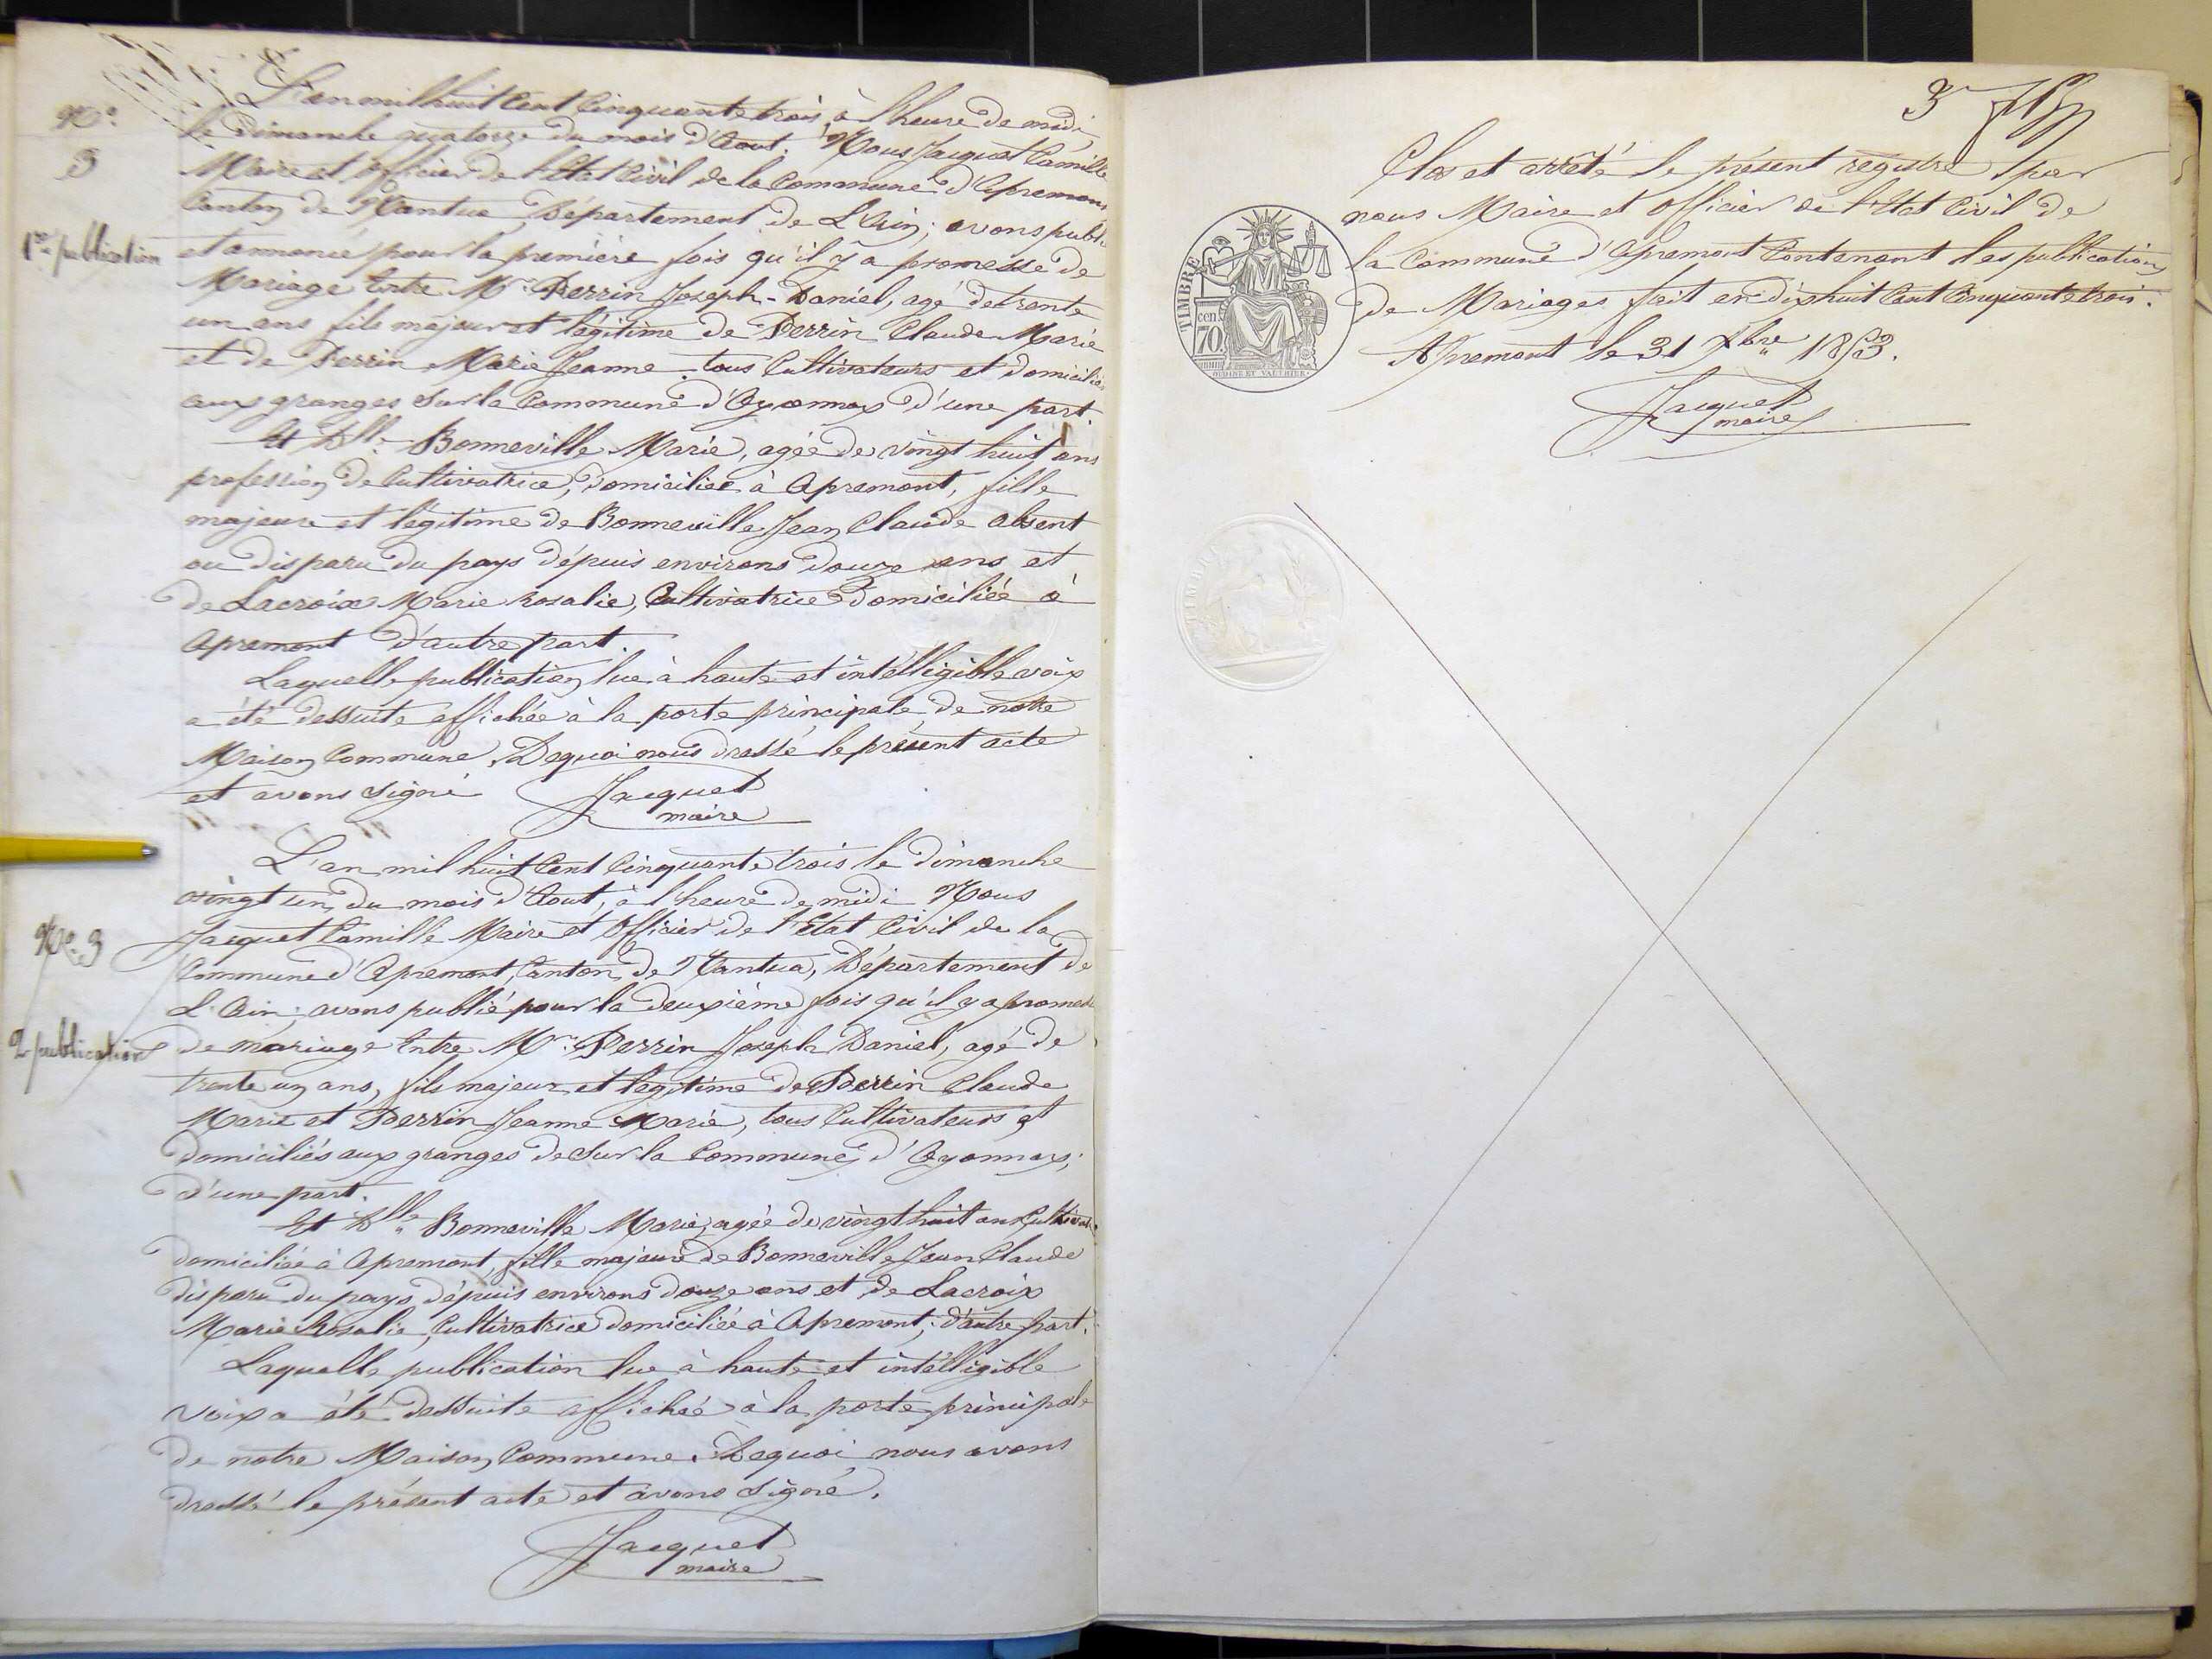 N.o
3
1re publication
L'an mil huit Cent Cinquante trois, à l'heure de midi
le Dimanche quatorze du mois d'Aout. Nous Jacquet Camille
Maire et Officier de l'Etat Civil de la Commune d'Apremont
Canton de Nantua, Département de L'Ain; avons publié
et annoncé pour la première fois qu'il y a promesse de
Mariage Entre Mr. Perrin Joseph-Daniel, agé de trente
un ans fils majeur et légitime de Perrin Claude Marie
et de Perrin Marie Jeanne tous Cultivateurs et domiciliés
aux granges sur la Commune d'Oyonnax d'une part.
Et Dlle Bonneville Marie, agée de vingt huit ans
profession de Cultivatrice, domiciliée à Apremont, fille
majeure et légitime de Bonneville Jean Claude absent
ou disparu du pays dépuis environs douze ans et
de Lacroix Marie Rosalie, Cultivatrice domiciliée à
Apremont d'autre part.
Laquelle publication lue à haute et intélligible voix
a été dessuite affichée à la porte principale de notre
Maison Commune. Dequoi nous dressé le présent acte
et avons signé
Jacquet
maire
No. 3
2e publication
L'an mil huit Cent Cinquante trois le dimanche
vingt un du mois d'Aout, à l'heure de midi Nous
Jacquet Camille Maire et Officier de l'Etat Civil de la
Commune d'Apremont, Canton de Nantua, Département de
L'Ain; avons publié pour la deuxième fois qu'il y a promesse
de mariage Entre Mr. Perrin Joseph Daniel, agé de
trente un ans, fils majeur et légitime de Perrin Claude
Marie et Perrin Jeanne Marie, tous Cultivateurs et
domiciliés aux granges de sur la Commune d'Oyonnax;
d'une part.
Et Dlle Bonneville Marie, agée de vingt huit ans Cultivat.
domiciliée à Apremont, fille majeure de Bonneville Jean Claude
disparu du pays dépuis environs douze ans et de Lacroix
Marie Rosalie, Cultivatrice domiciliée à Apremont; d'autre part.
Laquelle publication lue à haute et intélligible
voix a été dessuite affichée à la porte principale
de notre Maison Commune. Dequoi nous avons
dressé le présent acte et avons signé.
Jacquet
maire
3
Clos et arrêté le présent registre par
nous Maire et Officier de l'Etat Civil de
la Commune d'Apremont Contenant les publications
de Mariages fait en dix huit Cent Cinquante trois.
Apremont le 31 Xbre 1853.
Jacquet
maire
TIMBRE
cen.
70.